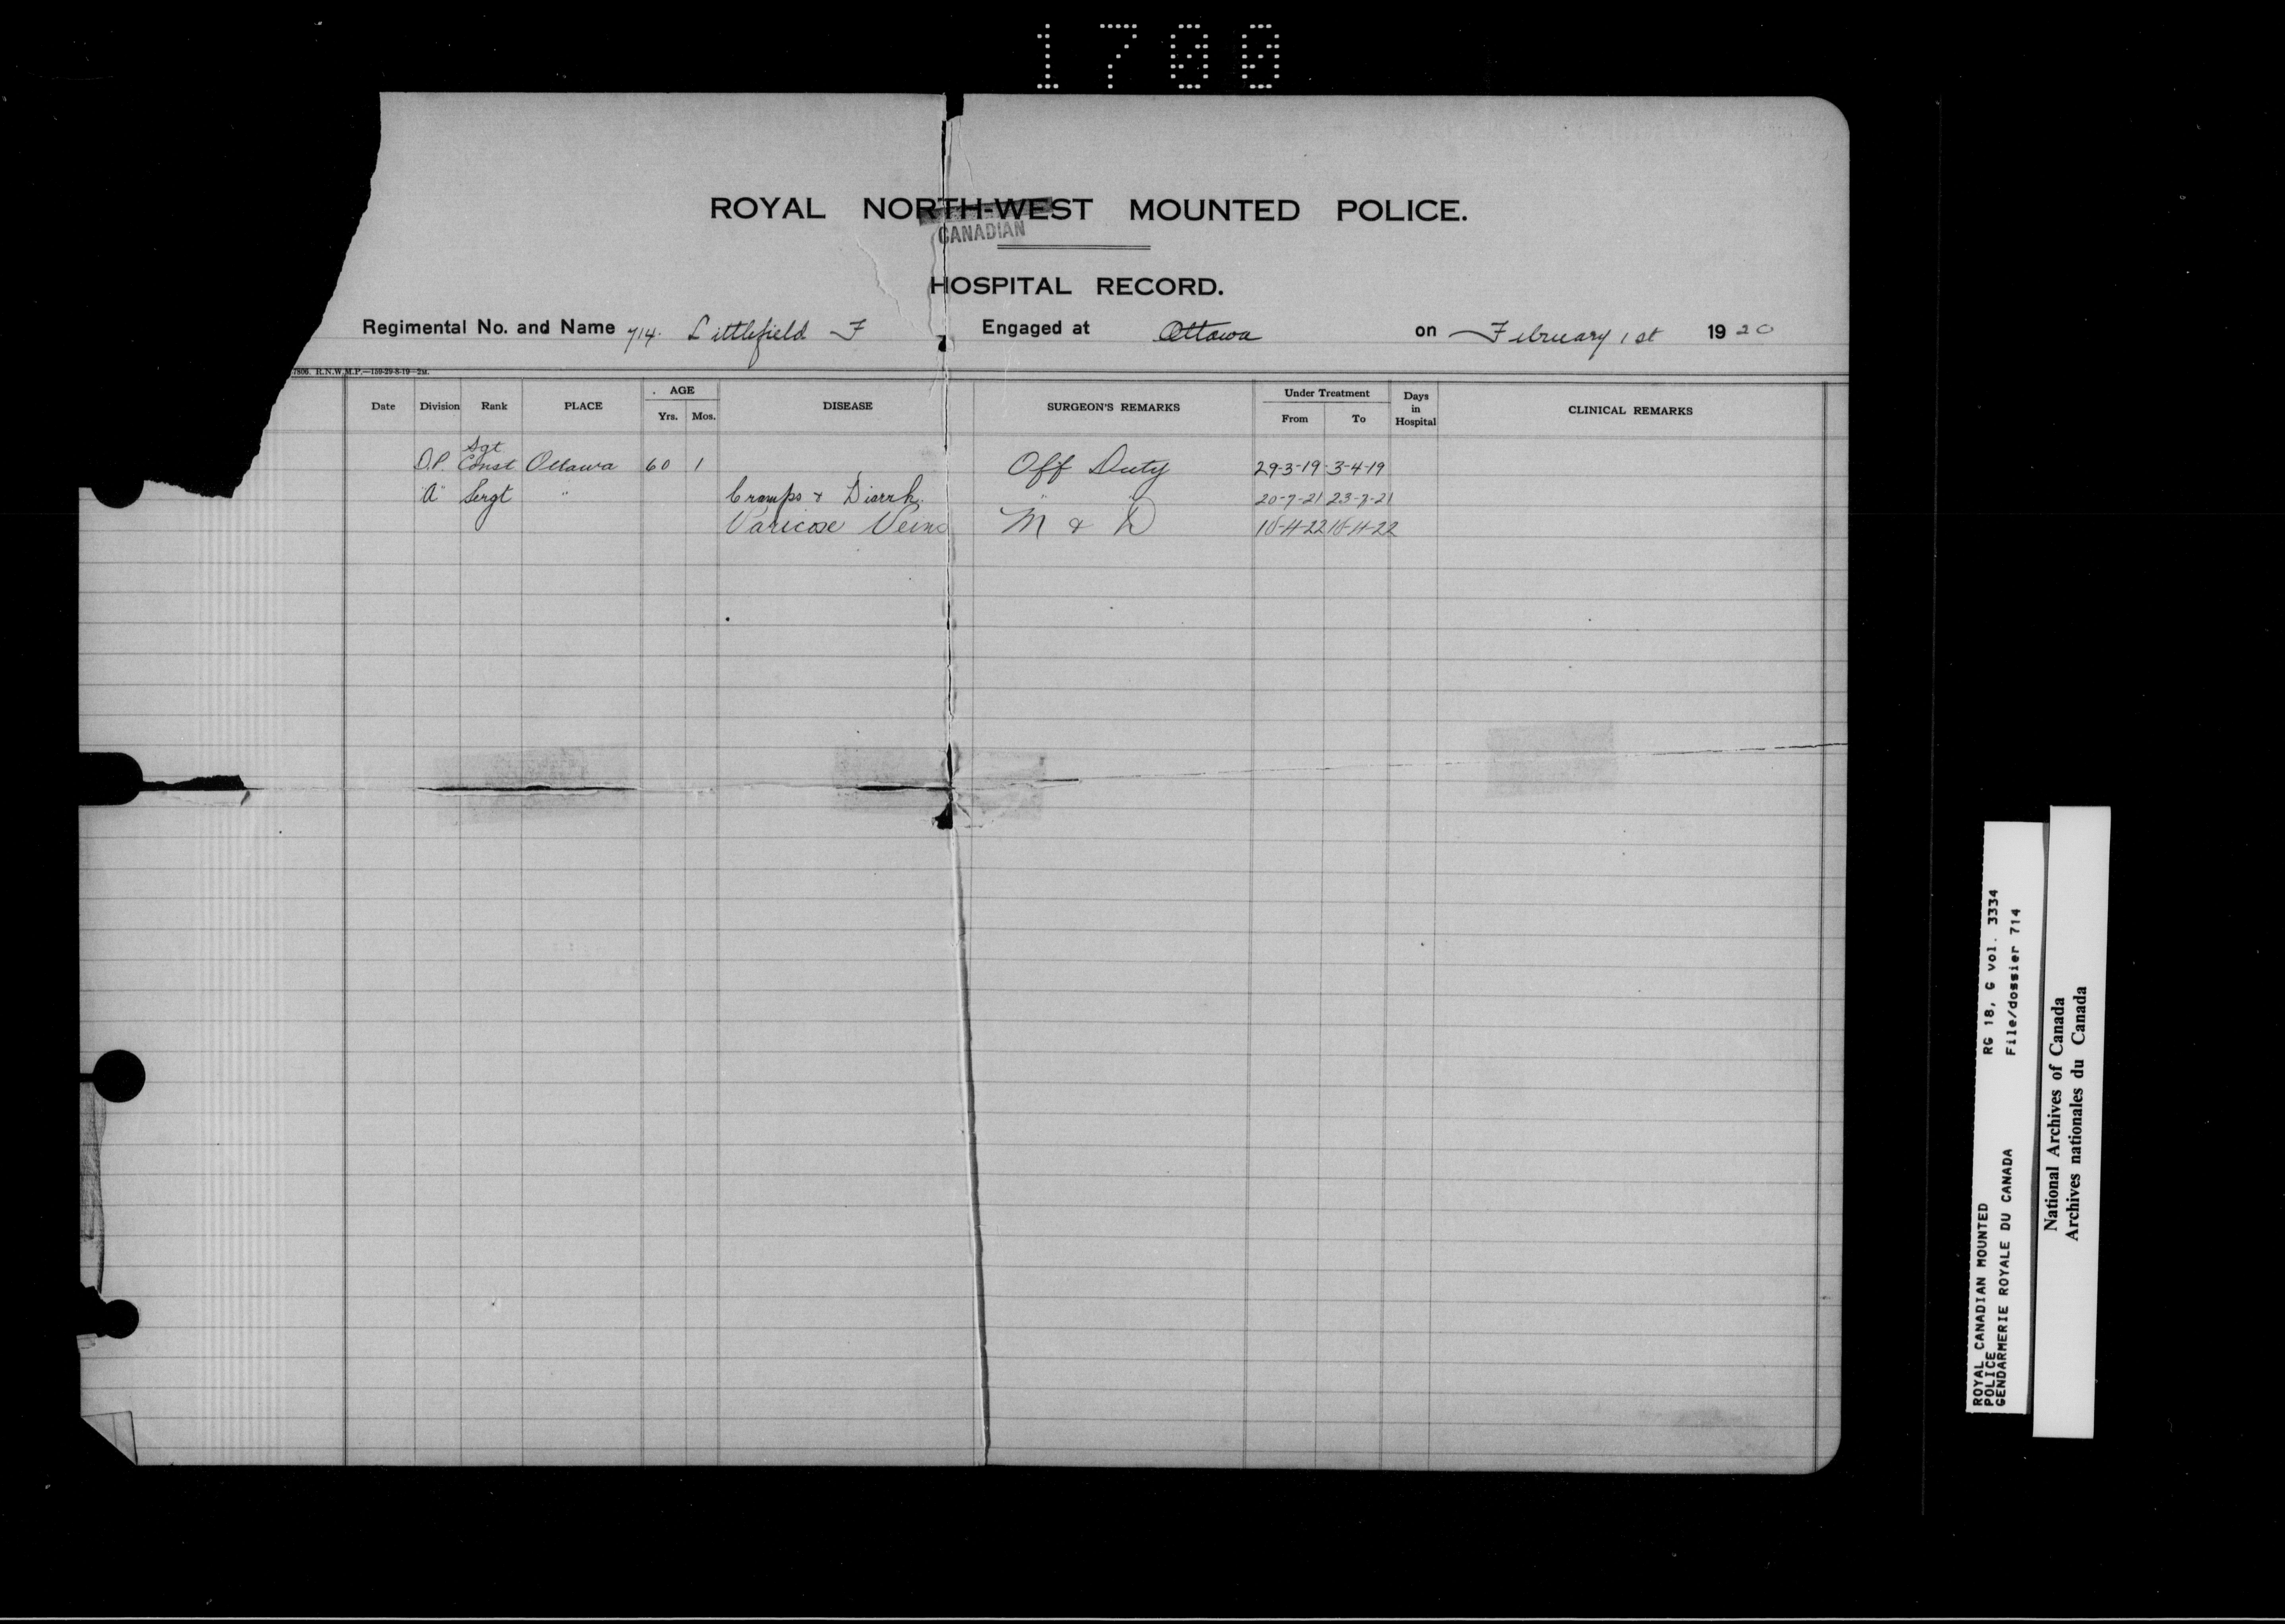 1700
ROYAL NORTH-WEST MOUNTED POLICE.
CANADIAN
HOSPITAL RECORD.
Regimental No. and Name 714. Littlefield F Engaged at Ottawa on February 1st 1920
7806. R.N.W.M.P.—159-29-8-19—2M.
Date Division Rank PLACE AGE Yrs. Mos. DISEASE SURGEON'S REMARKS Under Treatment From To Days in Hospital CLINICAL REMARKS
Sgt
D.P. Const Ottawa 60 1 Off Duty 29-3-19 3-4-19
"A" Sergt " Cramps & Diarrh. " " 20-7-21 23-7-21
Varicose Veins M & D
ROYAL CANADIAN MOUNTED RG 18, G vol. 3334
POLICE
GENDARMERIE ROYALE DU CANADA File/dossier 714
National Archives of Canada
Archives nationales du Canada